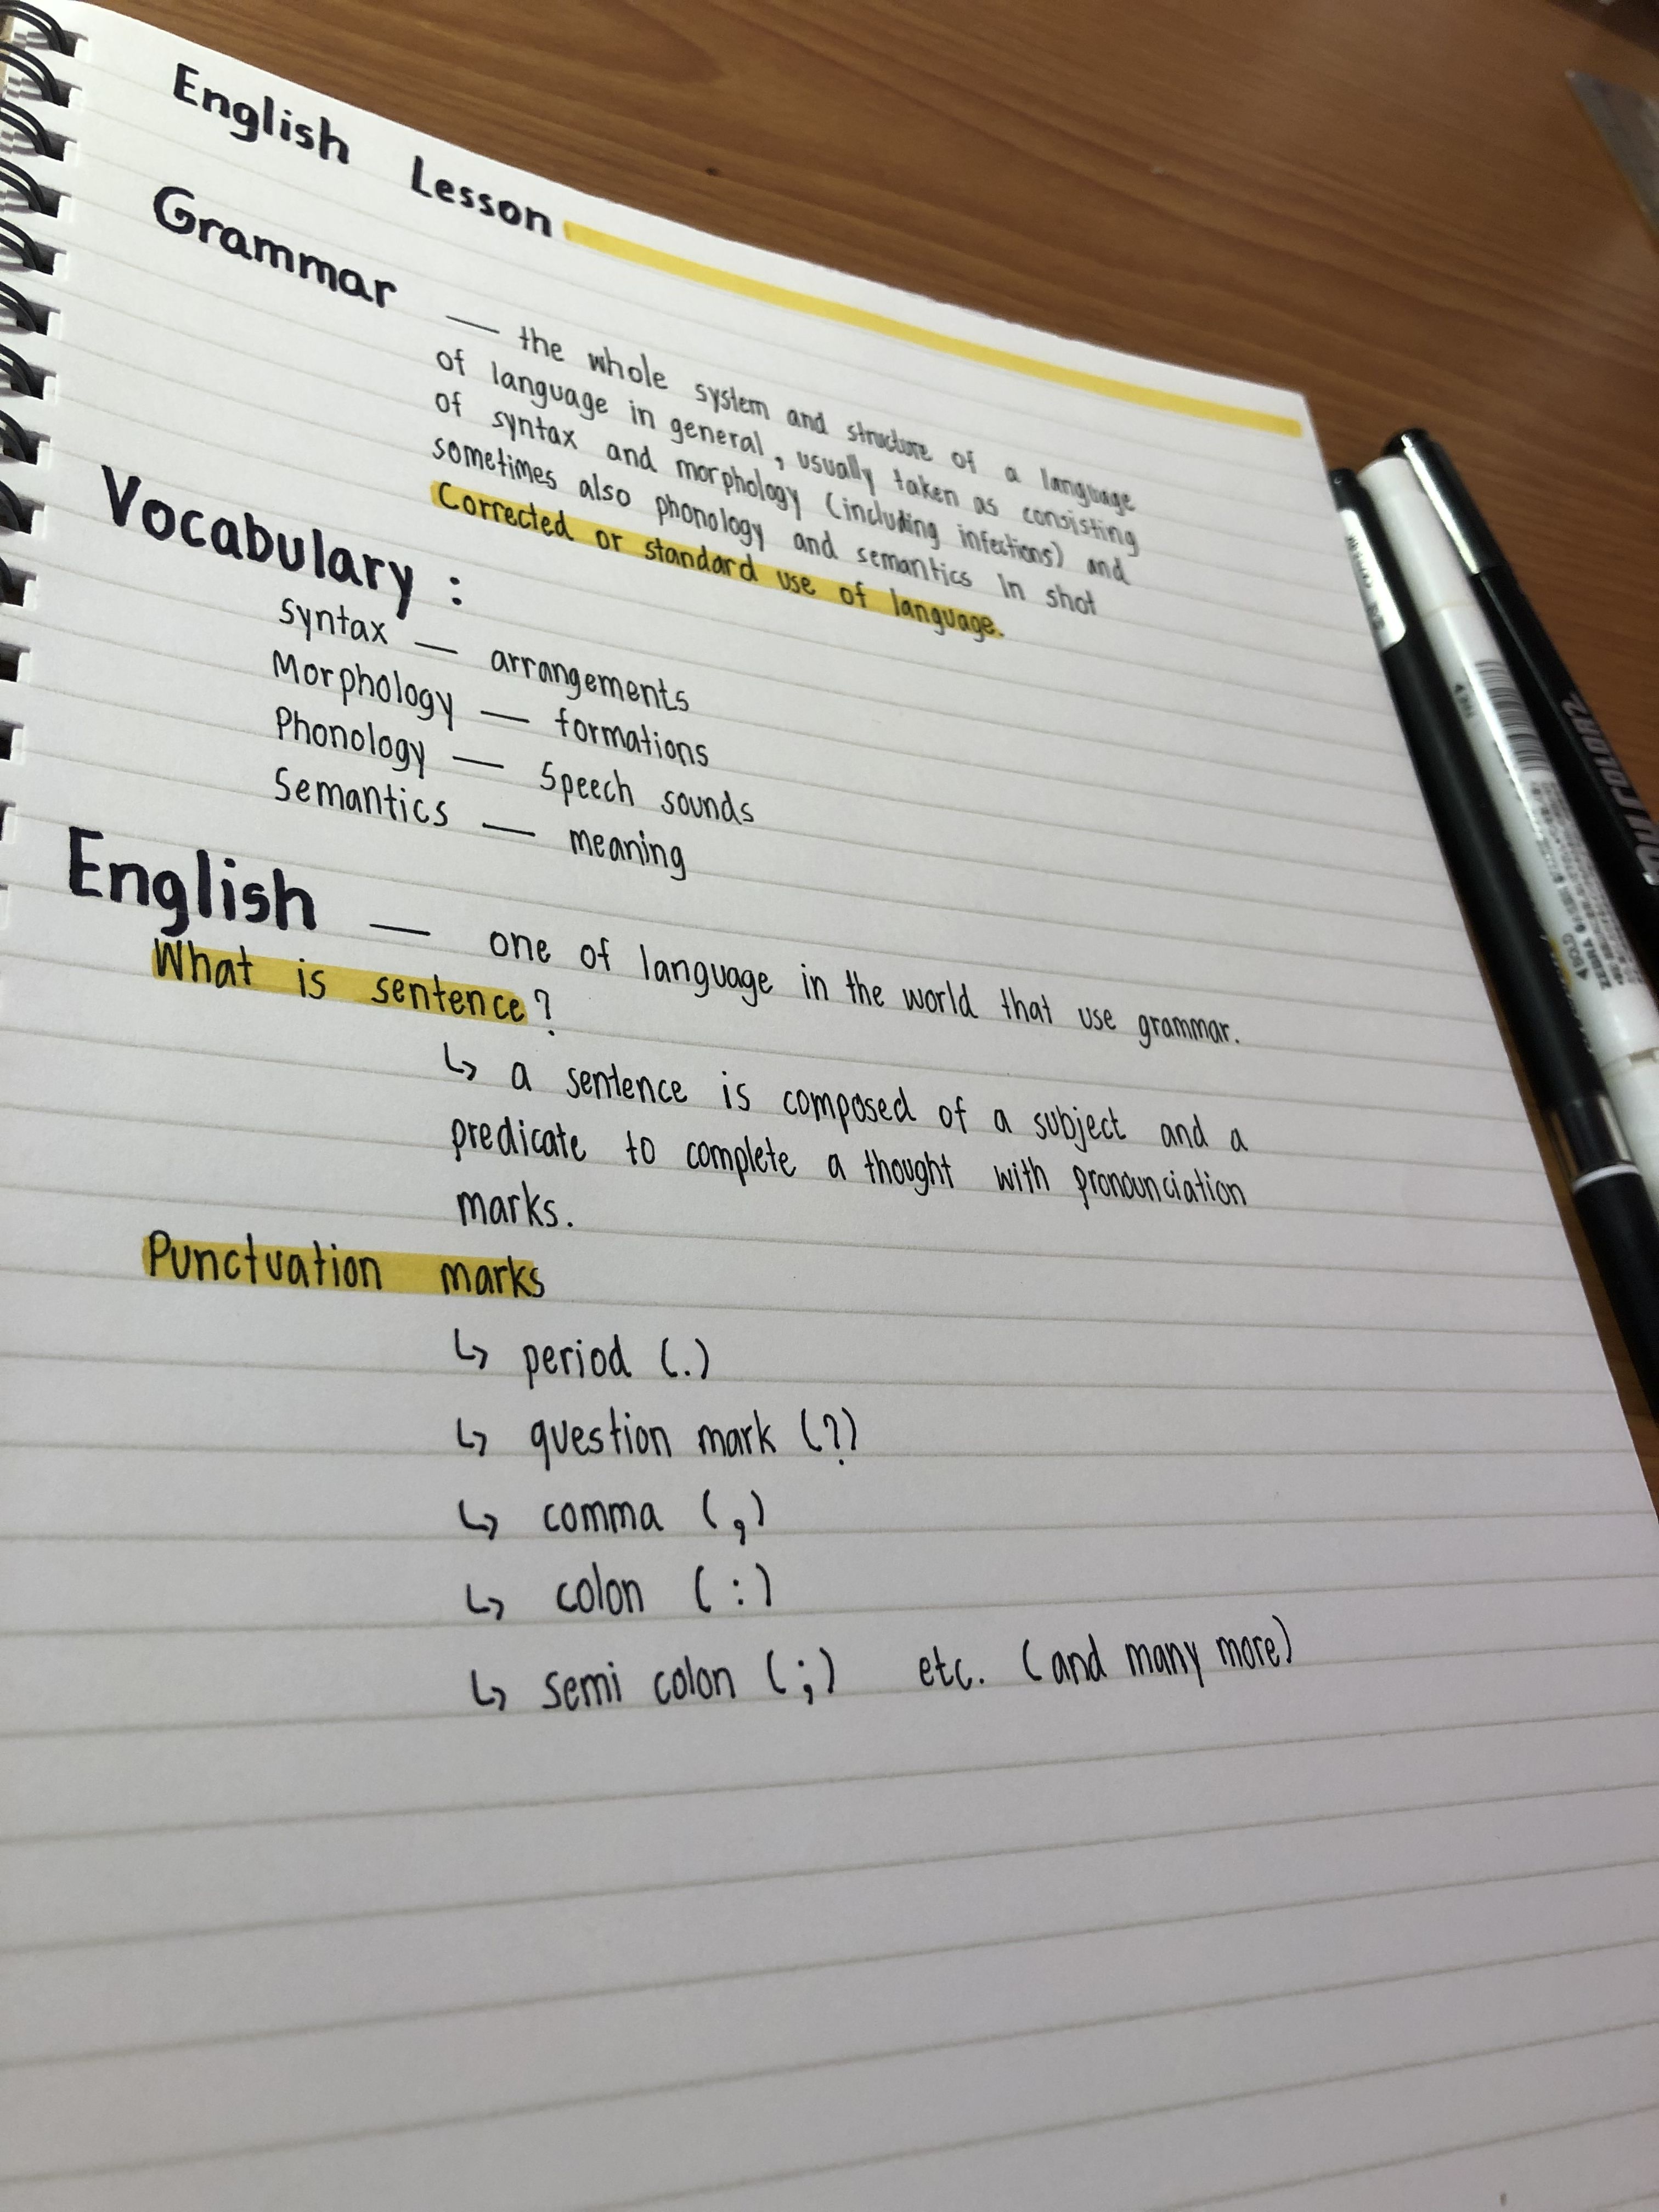 English Lesson
Grammar
— the whole system and structure of a language
of language in general, usually taken as consisting
of syntax and morphology (including infections) and
sometimes also phonology and semantics In shot
Corrected or standard use of language.
Vocabulary :
Syntax — arrangements
Morphology — formations
Phonology — Speech sounds
Semantics — meaning
English — one of language in the world that use grammar.
What is sentence?
↳ a sentence is composed of a subject and a
predicate to complete a thought with pronounciation
marks.
Punctuation marks
↳ period (.)
↳ question mark (?)
↳ comma (,)
↳ colon (:)
↳ semi colon (;) etc. (and many more)
ZEBRA